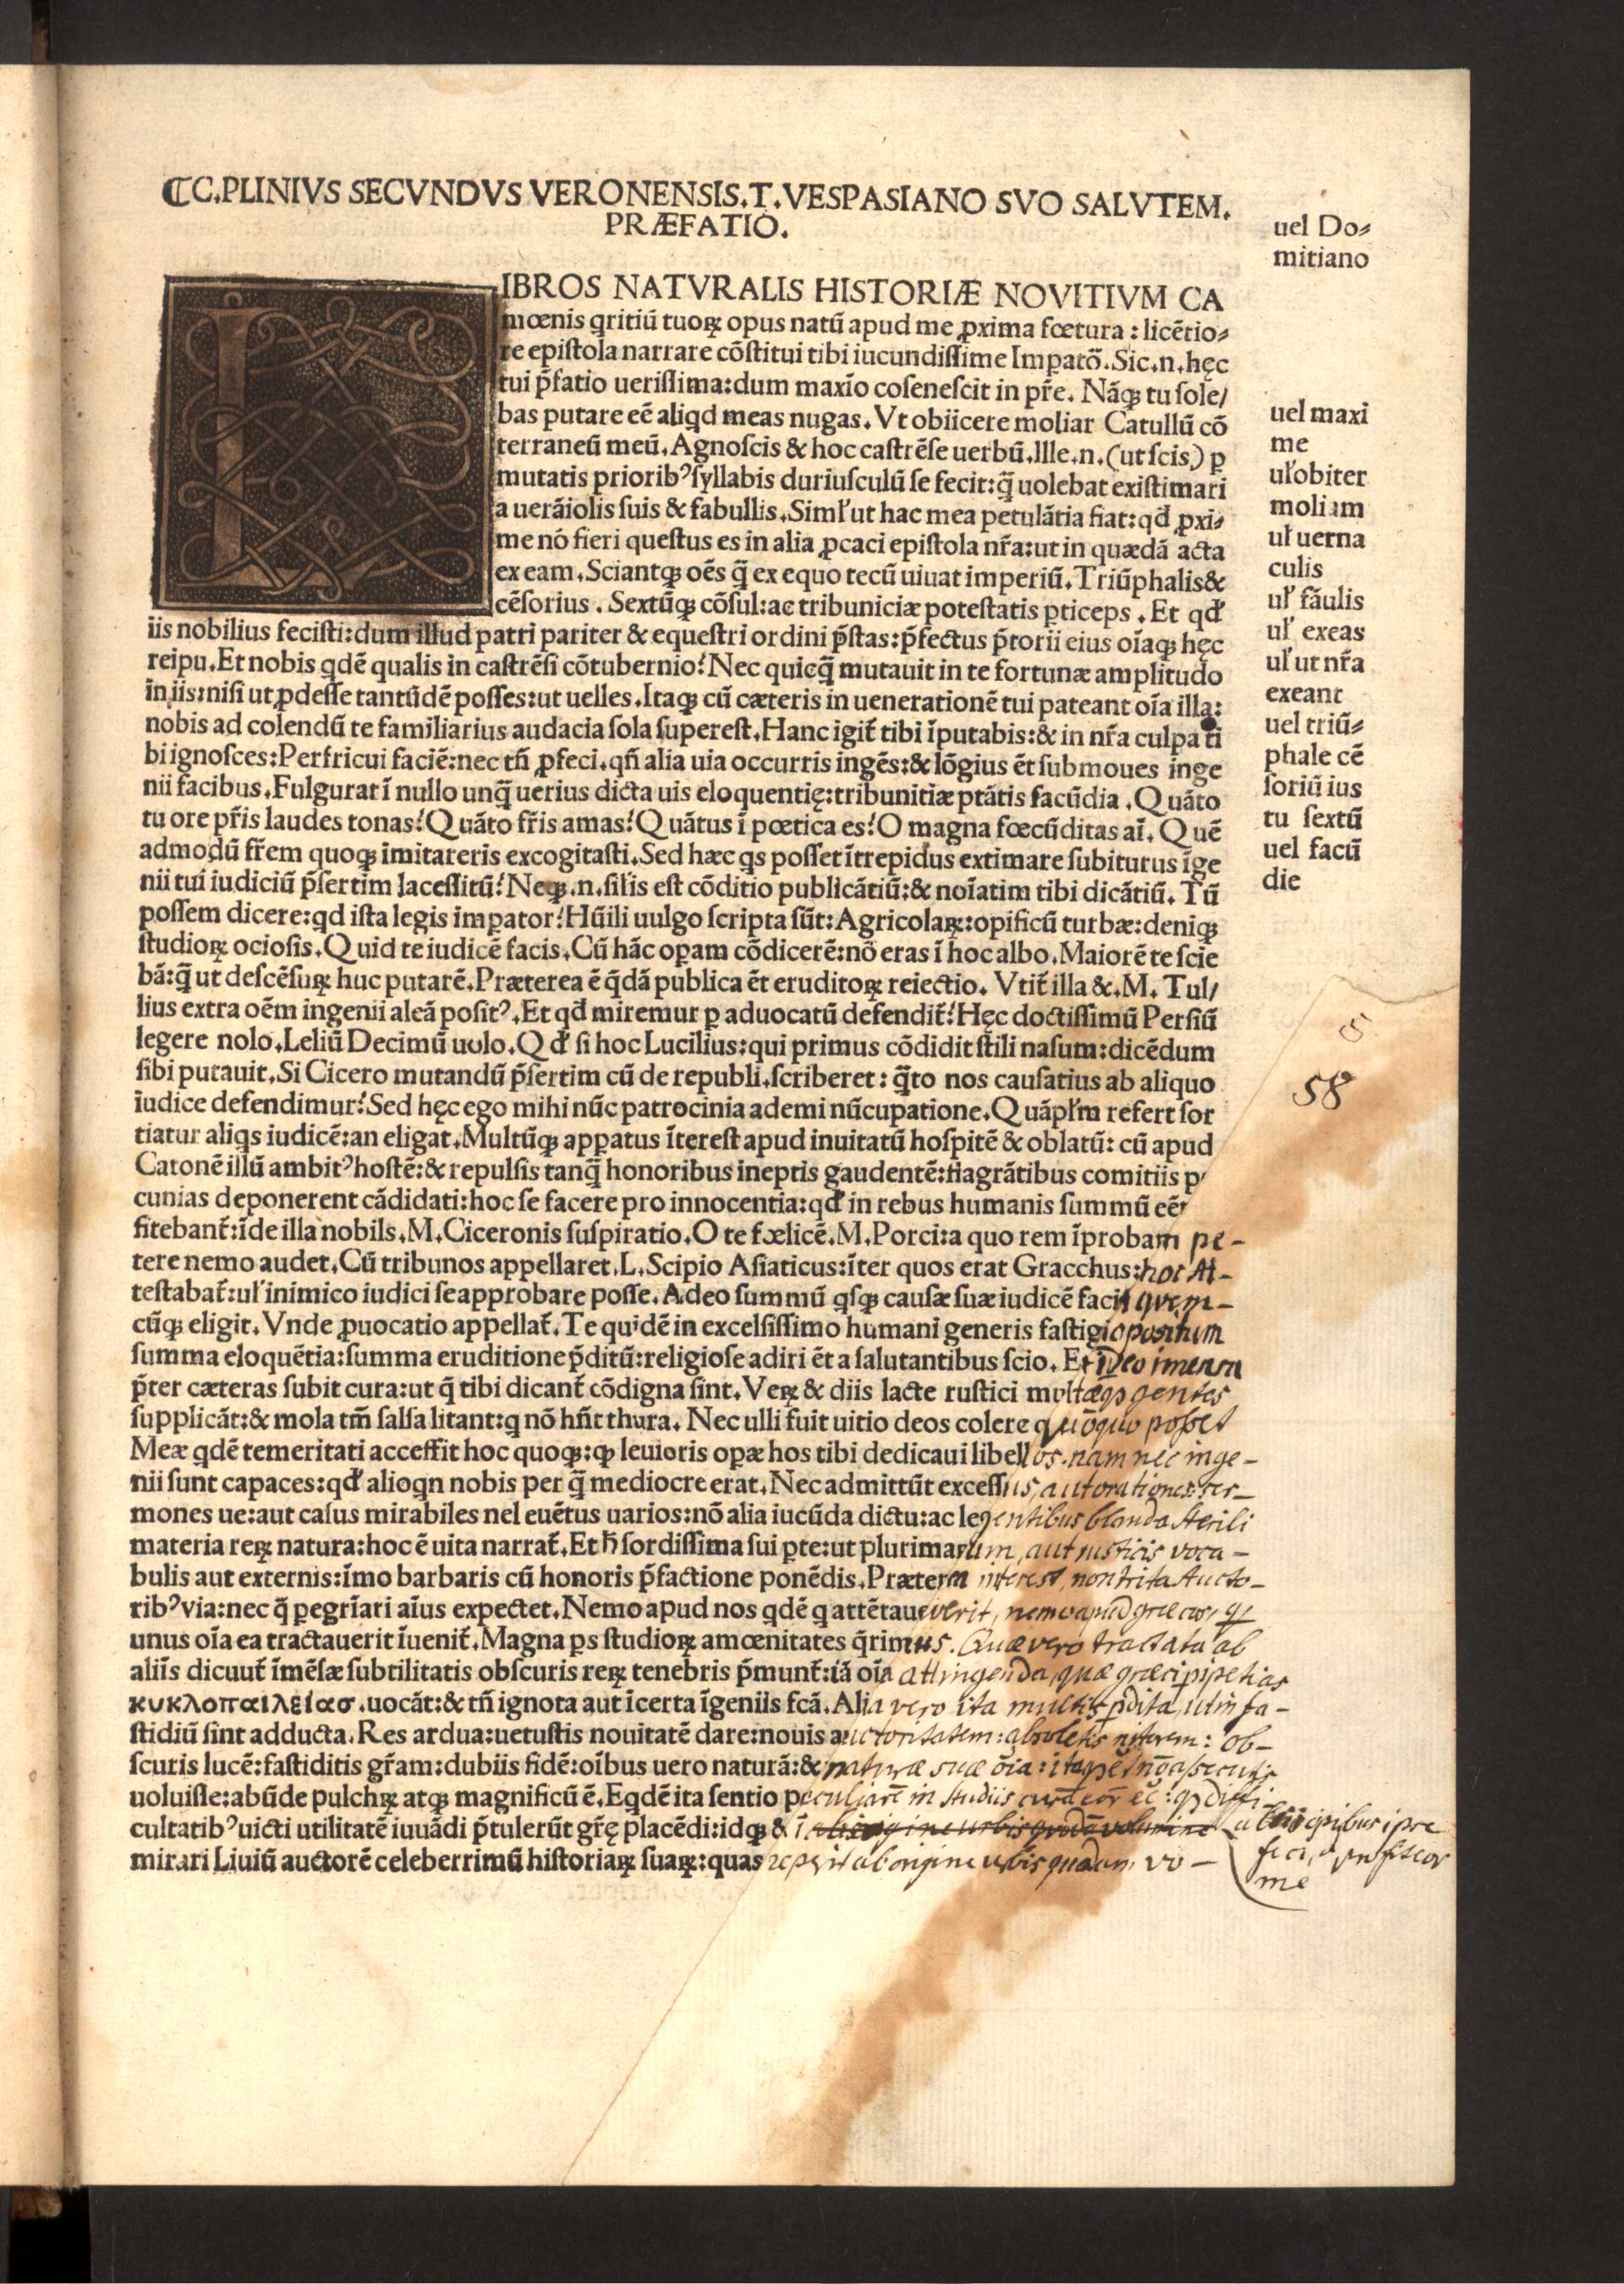 ₵C.PLINIVS SECVNDVS VERONENSIS.T.VESPASIANO SVO SALVTEM.
PRÆFATIO.
LIBROS NATVRALIS HISTORIÆ NOVITIVM CA
mœnis qritiũ tuoꝝ opus natũ apud me ꝓxima fœtura : licẽtio⸗
re epistola narrare cõstitui tibi iucundissime Impatõ. Sic.n.hęc
tui p̃fatio uerissima:dum maxĩo cosenescit in pr̃e. Nãqꝫ tu sole/
bas putare eẽ aliqd meas nugas. Vt obiicere moliar Catullũ cõ
terraneũ meũ. Agnoscis & hoc castrẽse uerbũ. Ille.n.(ut scis) ꝑ
mutatis prioribꝰ syllabis duriusculũ se fecit:q̃ uolebat existimari
a uerãiolis suis & fabullis. Simł ut hac mea petulãtia fiat:qđ ꝓxi⸗
me nõ fieri questus es in alia ꝓcaci epistola nr̃a:ut in quædã acta
ex eam. Sciantqꝫ oẽs q̃ ex equo tecũ uiuat imperiũ. Triũphalis &
cẽsorius . Sextũqꝫ cõsul:ac tribuniciæ potestatis ꝑticeps . Et qđ
iis nobilius fecisti:dum illud patri pariter & equestri ordini p̃stas:p̃fectus p̃torii eius oĩaqꝫ hęc
reipu. Et nobis qdẽ qualis in castrẽsi cõtubernio? Nec quicq̃ mutauit in te fortunæ amplitudo
in iis:nisi ut ꝓdesse tantũdẽ posses:ut uelles. Itaqꝫ cũ cæteris in uenerationẽ tui pateant oĩa illa:
nobis ad colendũ te familiarius audacia sola superest. Hanc igit̃ tibi ĩputabis:& in nr̃a culpa ti
bi ignosces:Perfricui faciẽ:nec tñ ꝓfeci.qñ alia uia occurris ingẽs:& lõgius ẽt submoues inge
nii facibus. Fulgurat ĩ nullo unq̃ uerius dicta uis eloquentię:tribunitiæ ptãtis facũdia . Quãto
tu ore pr̃is laudes tonas? Quãto fr̃is amas? Quãtus ĩ poetica es? O magna fœcũditas aĩ. Quẽ
admodũ fr̃em quoqꝫ imitareris excogitasti. Sed hæc qs posset ĩtrepidus extimare subiturus ĩge
nii tui iudiciũ p̃sertim lacessitũ? Neqꝫ.n.siłis est cõditio publicãtiũ:& noĩatim tibi dicãtiũ. Tũ
possem dicere:qd ista legis impator? Hũili uulgo scripta sũt:Agricolaꝝ:opificũ turbæ:deniqꝫ
studioꝝ ociosis. Quid te iudicẽ facis. Cũ hãc opam cõdicerẽ:nõ eras ĩ hoc albo. Maiorẽ te scie
bã:q̃ ut descẽsuꝝ huc putarẽ. Præterea ẽ q̃dã publica ẽt eruditoꝝ reiectio. Vtit̃ illa &.M. Tul/
lius extra oẽm ingenii aleã positꝰ. Et qđ miremur ꝑ aduocatũ defendit̃? Hęc doctissimũ Persiũ
legere nolo. Leliũ Decimũ uolo. Qđ si hoc Lucilius:qui primus cõdidit stili nasum:dicẽdum
sibi putauit. Si Cicero mutandũ p̃sertim cũ de republi.scriberet : q̃to nos causatius ab aliquo
iudice defendimur? Sed hęc ego mihi nũc patrocinia ademi nũcupatione. Quãpłm refert sor
tiatur aliqs iudicẽ:an eligat. Multũqꝫ apparatus ĩterest apud inuitatũ hospitẽ & oblatũ: cũ apud
Catonẽ illũ ambitꝰ hostẽ:& repulsis tanq̃ honoribus ineptis gaudentẽ:flagrãtibus comitiis p
cunias deponerent cãdidati:hoc se facere pro innocentia:qđ in rebus humanis summũ eẽ
fitebant̃:ĩde illa nobils. M. Ciceronis suspiratio. O te fœlicẽ. M. Porci:a quo rem ĩprobam pe-
tere nemo audet. Cũ tribunos appellaret. L. Scipio Asiaticus:ĩter quos erat Gracchus:hoc At-
testabat̃:uł inimico iudici se approbare posse. Adeo summũ qsqꝫ causæ suæ iudicẽ facit quem-
cũqꝫ eligit. Vnde ꝓuocatio appellat̃. Te quidẽ in excelsissimo humani generis fastigio positum
summa eloquẽtia:summa eruditione p̃ditũ:religiose adiri ẽt a salutantibus scio. Et Ideo imensa
p̃ter cæteras subit cura:ut q̃ tibi dicant̃ cõdigna sint. Veꝝ & diis lacte rustici multæqꝫ gentes
supplicãt:& mola tm̃ salsa litant:q nõ hñt thura. Nec ulli fuit uitio deos colere quõquo posset
Meæ qdẽ temeritati accessit hoc quoqꝫ:ꝙ leuioris opæ hos tibi dedicaui libellos. nam nec inge-
nii sunt capaces:qđ alioqn nobis per q̃ mediocre erat. Nec admittũt excessus, aut orationes: ser-
mones ue:aut casus mirabiles nel euẽtus uarios:nõ alia iucũda dictu:ac legentibus blanda sterili
materia reꝝ natura:hoc ẽ uita narrat̃. Et ħ sordissima sui ꝑte:ut plurimarum, aut rusticis voca-
bulis aut externis:ĩmo barbaris cũ honoris p̃factione ponẽdis. Præterea interest, non trita Aucto-
ribꝰ via:nec q̃ pegrĩari aĩus expectet. Nemo apud nos qdẽ q attẽtauerit, nemo apud græcos, q
unus oĩa ea tractauerit ĩuenit̃. Magna ps studioꝝ amœnitates q̃rimus. Quæ vero tractata ab
aliĩs dicuut̃ ĩmẽsæ subtilitatis obscuris reꝝ tenebris p̃munt̃:iã oĩa attingenda, quæ græci pipetias
κυκλοπαιλείασ.uocãt:& tñ ignota aut ĩcerta ĩgeniis fcã. Alia vero ita multis ꝓdita, ut in fa-
stidiũ sint adducta. Res ardua:uetustis nouitatẽ dare:nouis auctoritatem: absoletis nitorem: ob-
scuris lucẽ:fastiditis gr̃am:dubiis fidẽ:oĩbus uero naturã:& naturæ suæ õia: itaqꝫ ẽt nõ assecutis
uoluisse:abũde pulchꝝ atqꝫ magnificũ ẽ. Eqdẽ ita sentio peculiarẽ in studiis
cultatibꝰ uicti utilitatẽ iuuãdi p̃tulerũt gr̃ę placẽdi:idqꝫ & ĩ
mirari Liuiũ auctorẽ celeberrimũ historiaꝝ suaꝝ:quas repetit ab origine urbis quadam vo-
uel Do⸗
mitiano
uel maxi
me
uł obiter
moliam
uł uerna
culis
uł fãulis
uł exeas
uł ut nr̃a
exeant
uel triũ⸗
phale cẽ
soriũ ius
tu sextũ
uel facũ
die
58
feci, profiteor
me